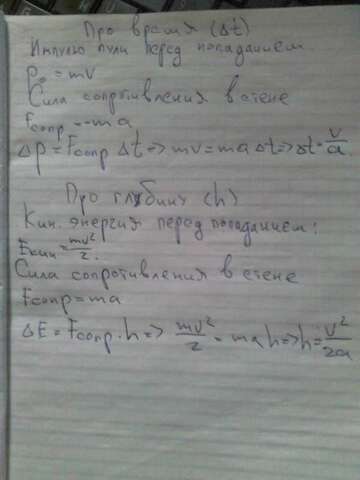 Про время (Δt)
Импульс пули перед попаданием.
P₀ = mv
Сила сопротивления в стене
Fсопр = ma
Δp = Fсопр Δt => mv = ma Δt => Δt = v/a
Про глубину (h)
Кин. энергия перед попаданием:
Eкин = mv²/2.
Сила сопротивления в стене
Fсопр = ma
ΔE = Fсопр · h => mv²/2 = mah => h = v²/2a